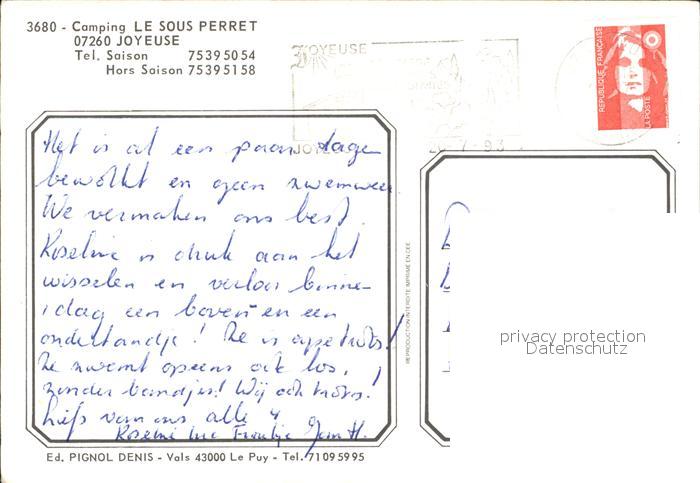 3680 - Camping LE SOUS PERRET
07260 JOYEUSE
Tel. Saison 75395054
Hors Saison 75395158
JOYEUSE
JOYEUSE
7-93
REPUBLIQUE FRANÇAISE
LA POSTE
Het is al een paar dagen
bewolkt en geen zwemweer.
We vermaken ons best.
Roseline is druk aan het
wisselen en verloor binnen
1 dag een boven en een
ondertandje! Ze is apetrots!
Ze zwemt opeens ook los,
zonder bandjes! Wij ook trots!
liefs van ons alle 4
Roseline Luc Froukje Jan H.
REPRODUCTION INTERDITE IMPRIME EN CEE
privacy protection
Datenschutz
Ed. PIGNOL DENIS - Vals 43000 Le Puy - Tel. 71095995